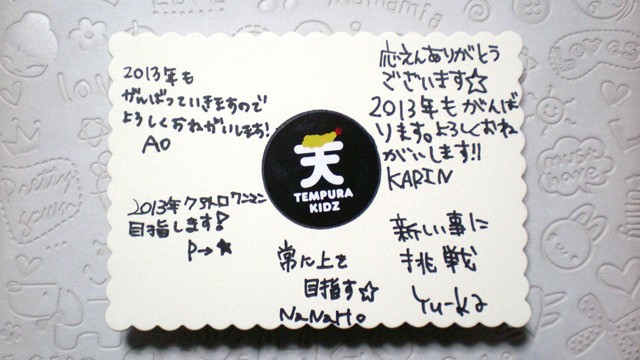 2013年も
がんばっていきますので
よろしくおねがいします!
AO
応えんありがとう
ございます☆
2013年もがんば
ります。よろしくおね
がいします!!
KARIN
天
TEMPURA
KIDZ
2013年クアトロワンマン
目指します!
P→★
常に上を
目指す☆
NaNaHo
新しい事に
挑戦
Yu-ka
love
Pretty
must
Have